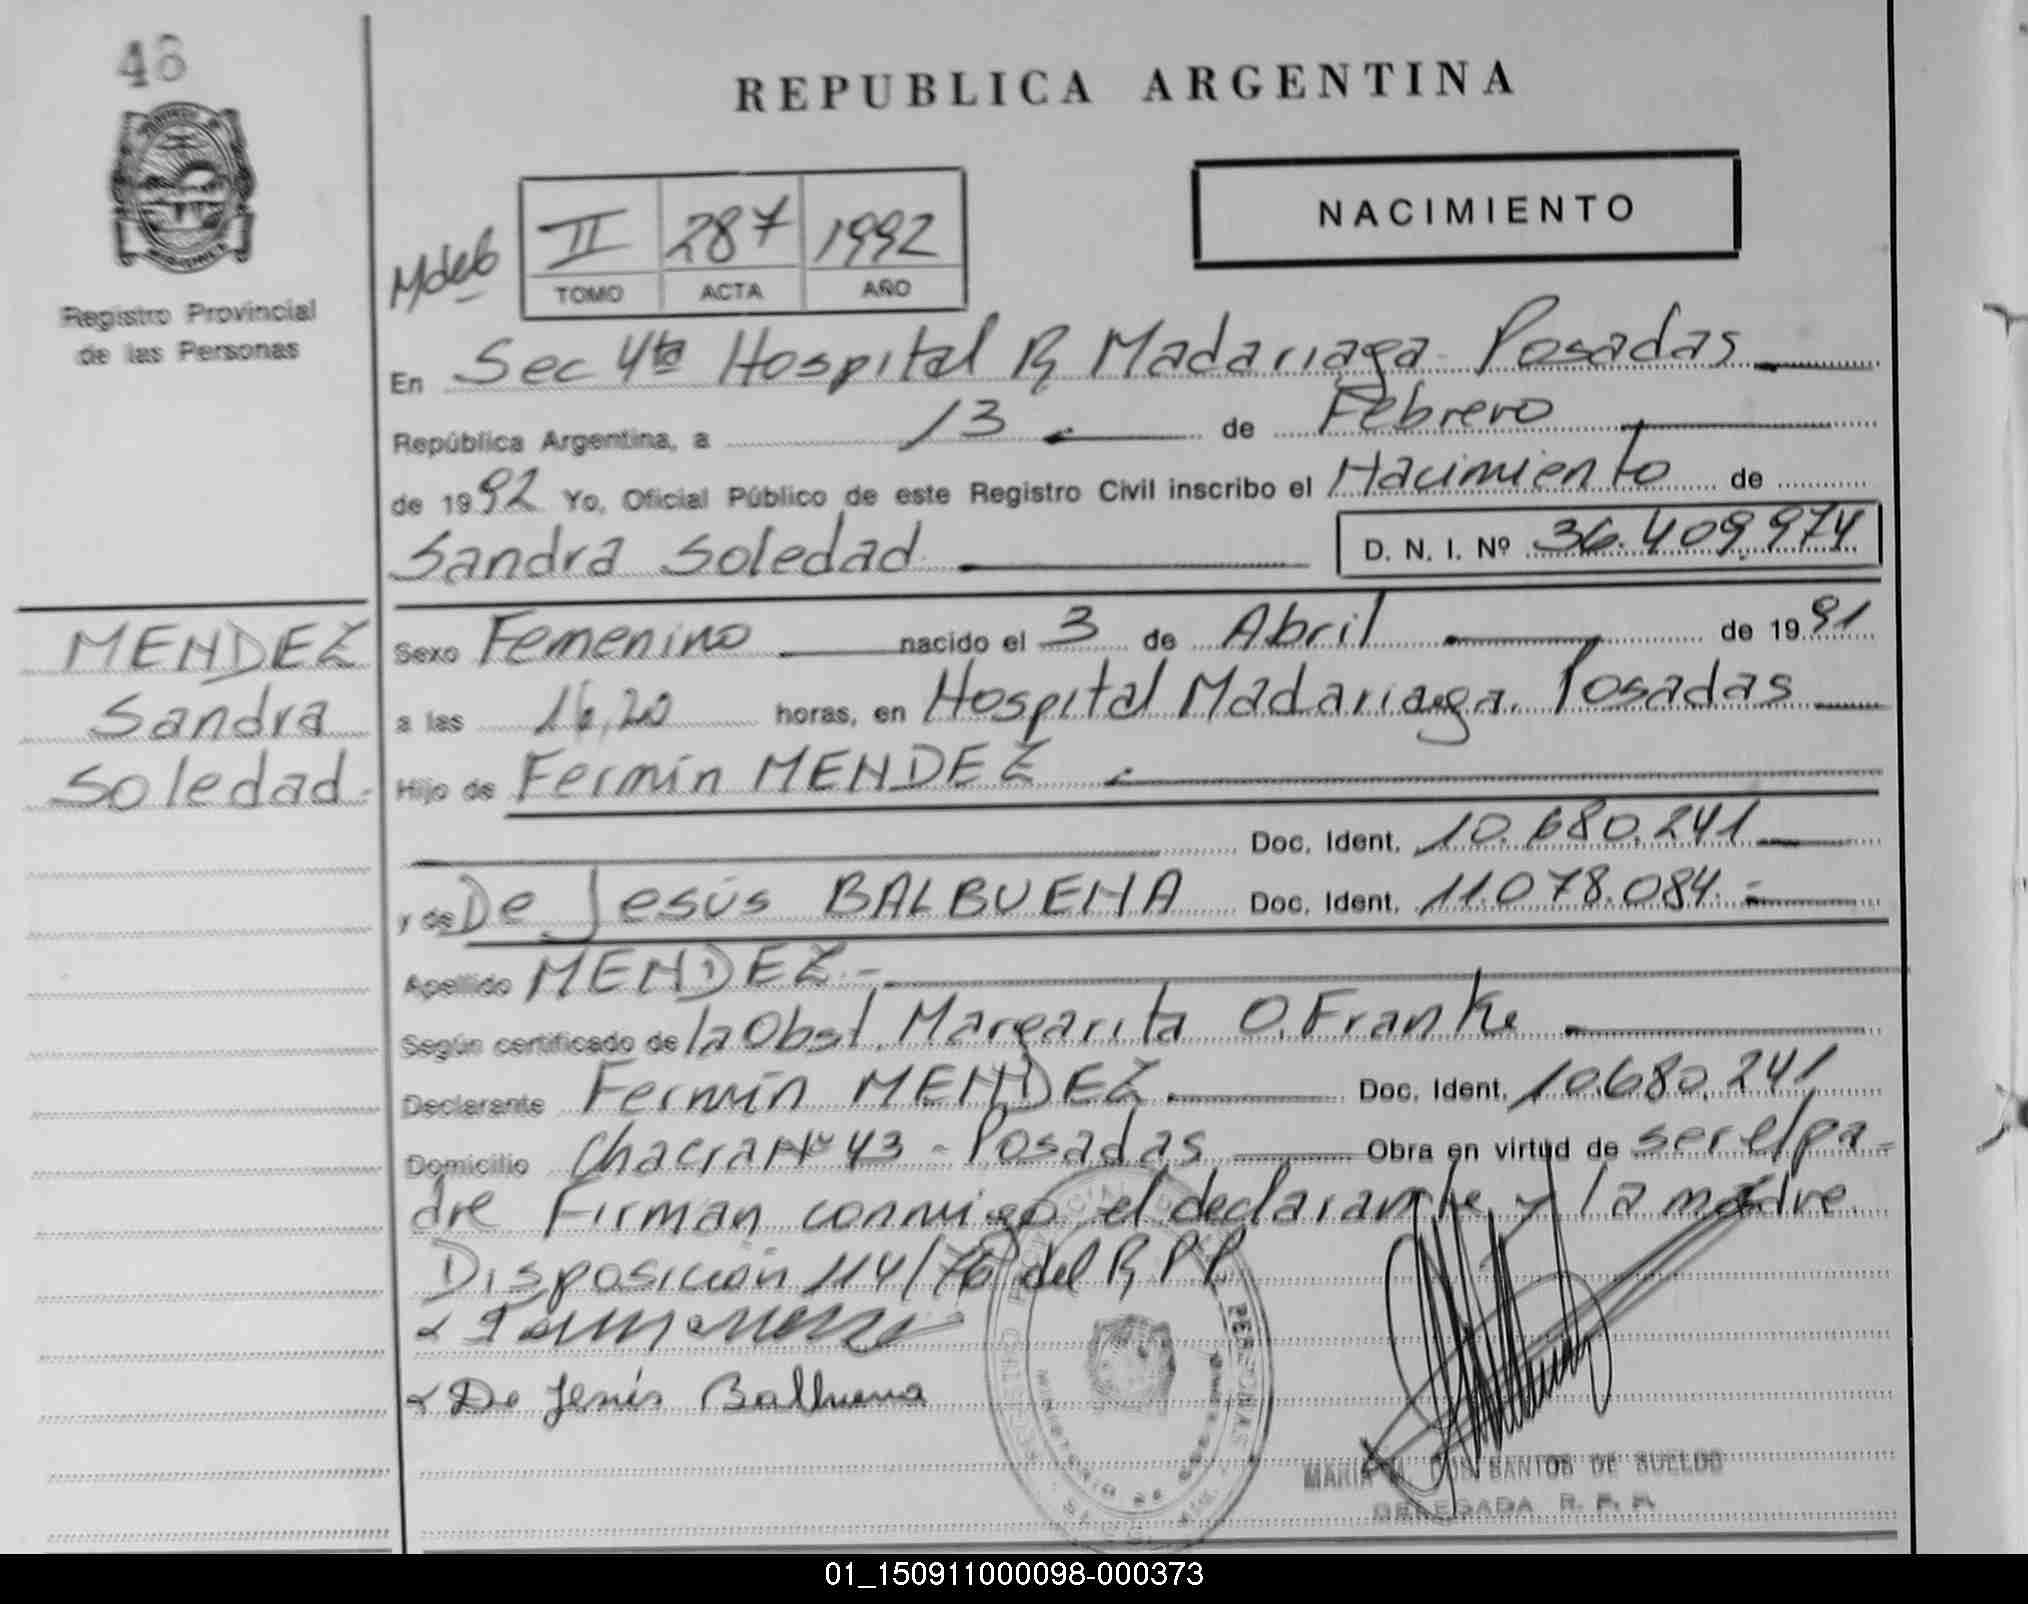 48
REPUBLICA ARGENTINA
NACIMIENTO
II 287 1992
TOMO ACTA AÑO
Registro Provincial
de las Personas
En Sec 4ta Hospital R Madariaga Posadas
República Argentina, a 13 de Febrero
de 1992 Yo, Oficial Público de este Registro Civil inscribo el Nacimiento de
Sandra Soledad D. N. I. Nº 36.409.974
MENDEZ
Sandra
Soledad
Sexo Femenino nacido el 3 de Abril de 1991
a las 16,20 horas, en Hospital Madariaga. Posadas
Hijo de Fermín MENDEZ
Doc. Ident. 10.680.241
y de De Jesús BALBUENA Doc. Ident. 11.078.084.-
Apellido MENDEZ.-
Según certificado de la Obst. Margarita O. Franke
Declarante Fermín MENDEZ Doc. Ident. 10.680.241
Domicilio Chacra Nº 43 - Posadas Obra en virtud de ser el pa-
dre Firman conmigo el declarante y la madre.
Disposición 114/76 del R P P
De Jesús Balbuena
MARIA DOS SANTOS DE SUELDO
DELEGADA R. P. P.
01_150911000098-000373